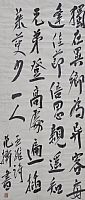 獨在異鄉為異客每
逢佳節倍思親遙知
兄弟登高處遍插
茱萸少一人
王維詩
範衛書